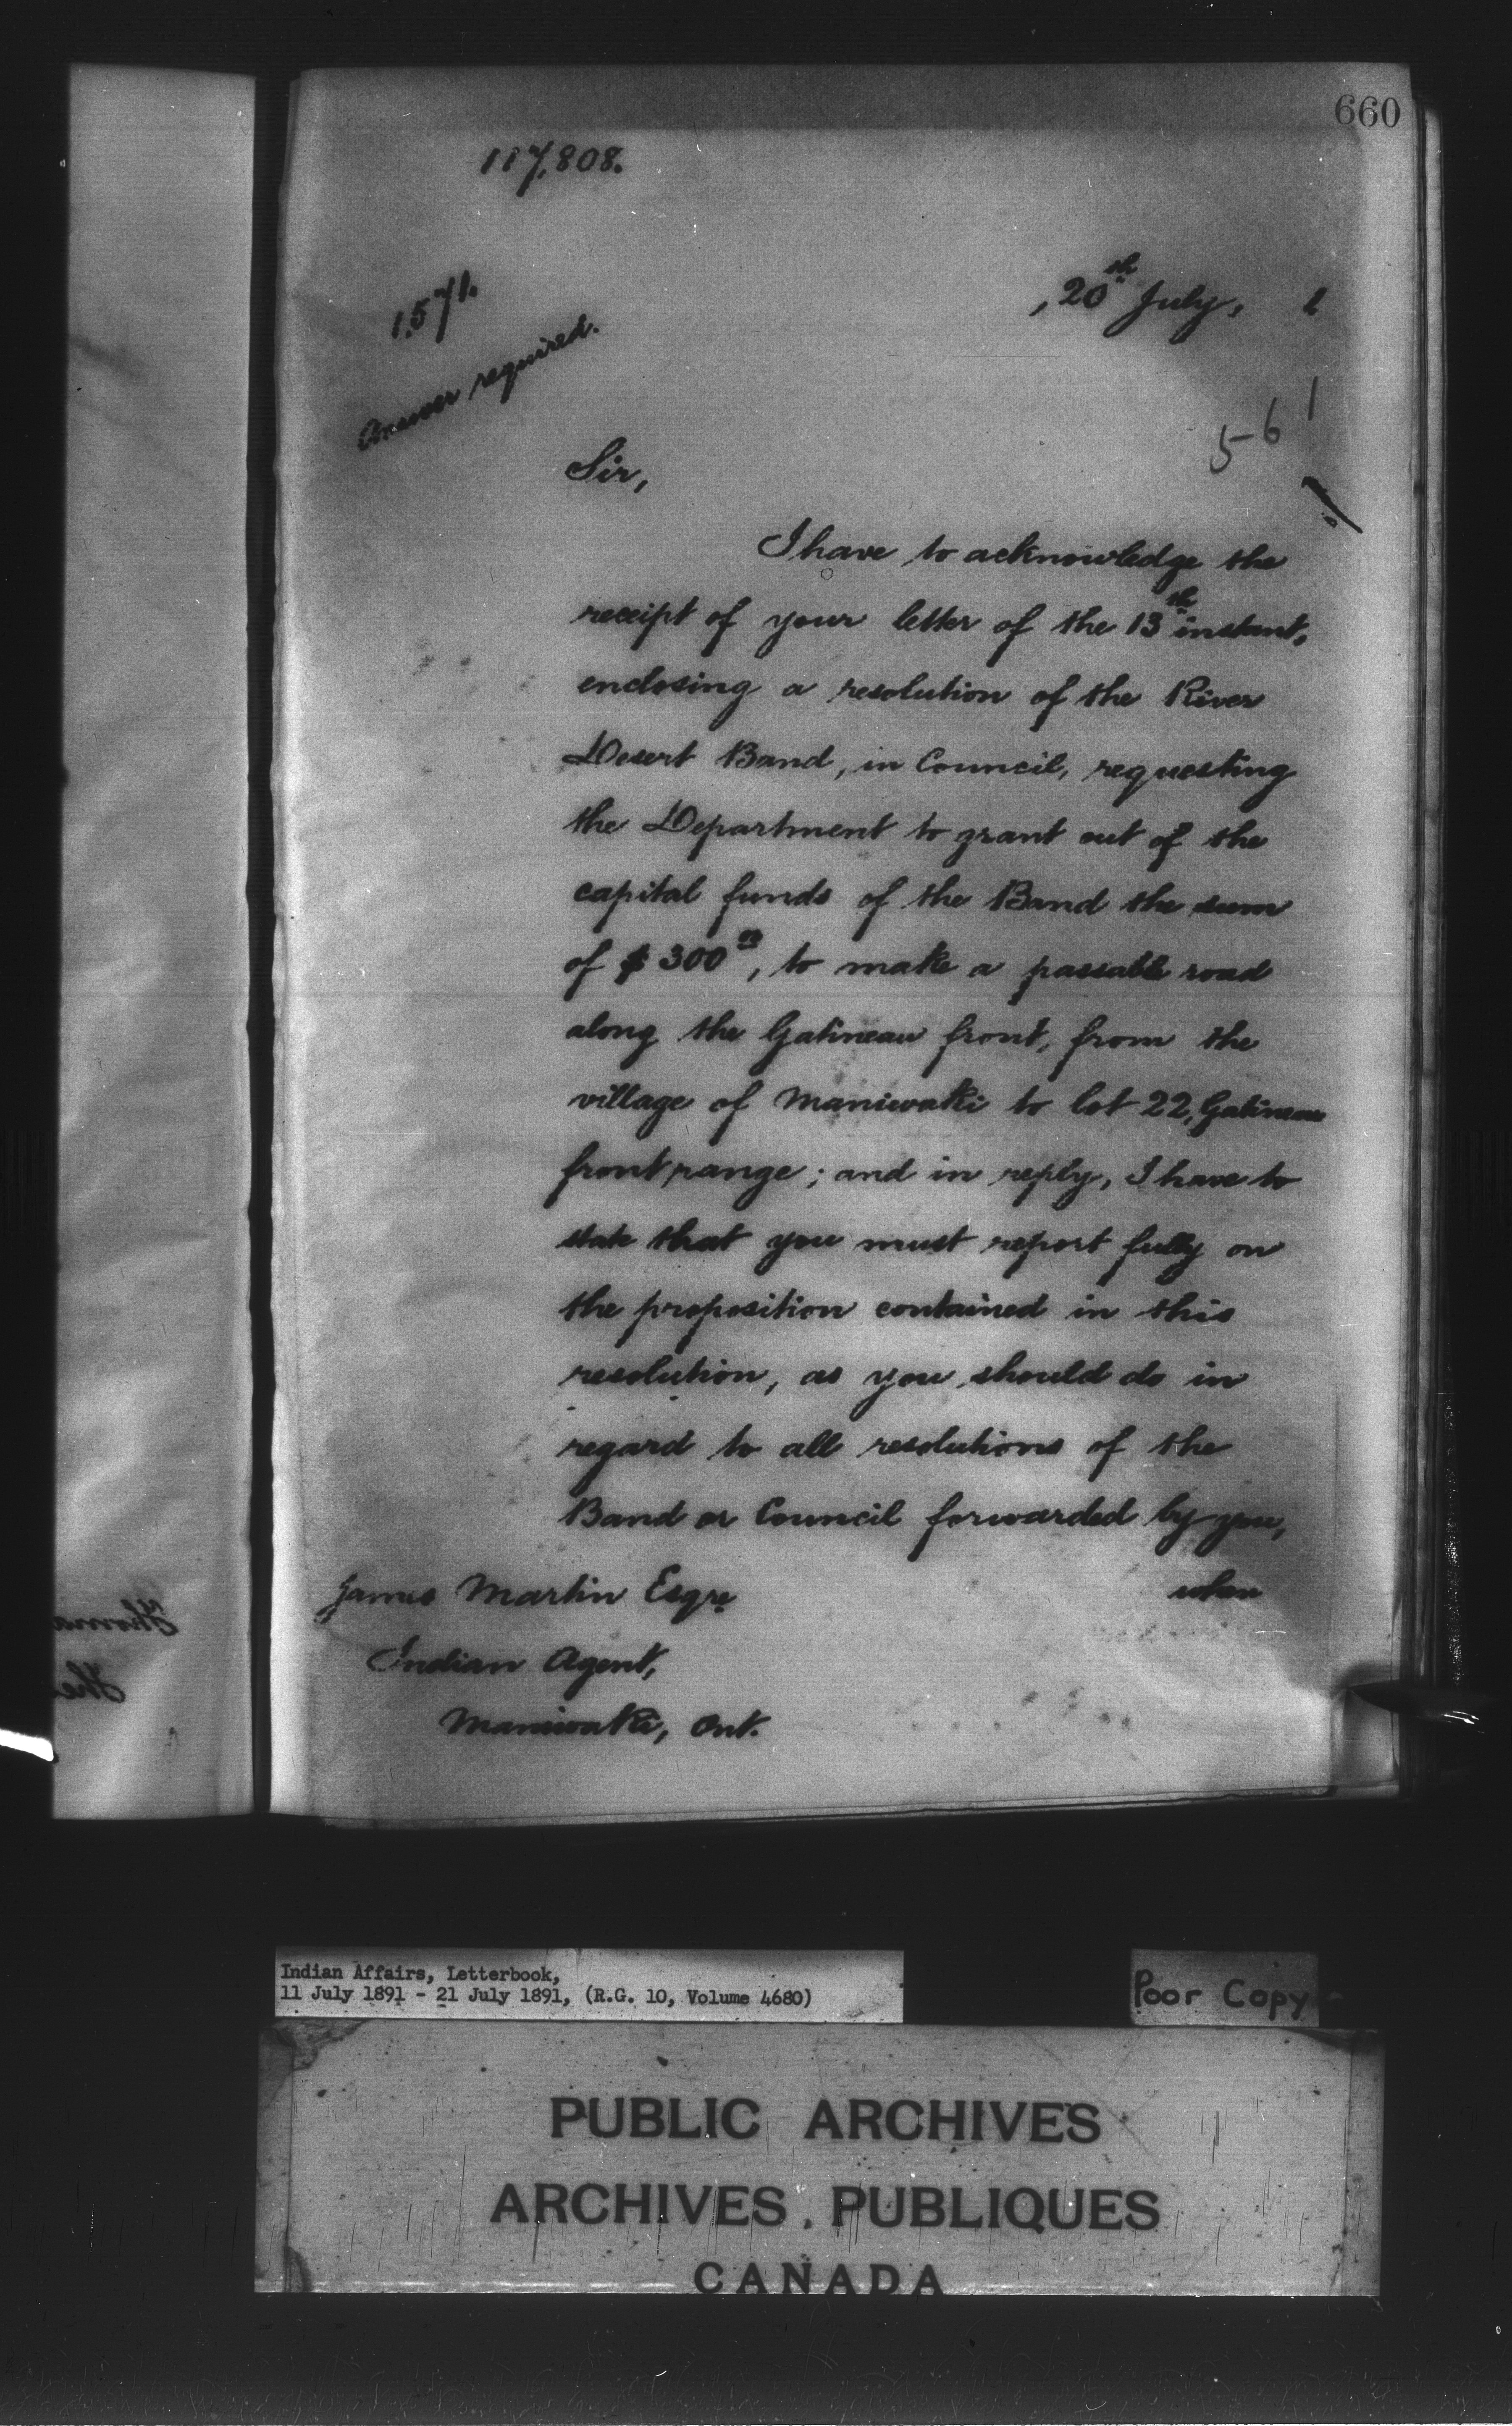 660
117,808.
, 20th July, 1
1,571.
Answer required.
561
Sir,
I have to acknowledge the
receipt of your letter of the 13th instant,
enclosing a resolution of the River
Desert Band, in Council, requesting
the Department to grant out of the
capital funds of the Band the sum
of $300 00, to make a passable road
along the Gatineau front, from the
village of Maniwaki to lot 22, Gatineau
front range; and in reply, I have to
state that you must report fully on
the proposition contained in this
resolution, as you should do in
regard to all resolutions of the
Band or Council forwarded by you,
when
James Martin Esqre
Indian Agent,
Maniwaki, Ont.
Indian Affairs, Letterbook,
11 July 1891 - 21 July 1891, (R.G. 10, Volume 4680)
Poor Copy
PUBLIC ARCHIVES
ARCHIVES PUBLIQUES
CANADA